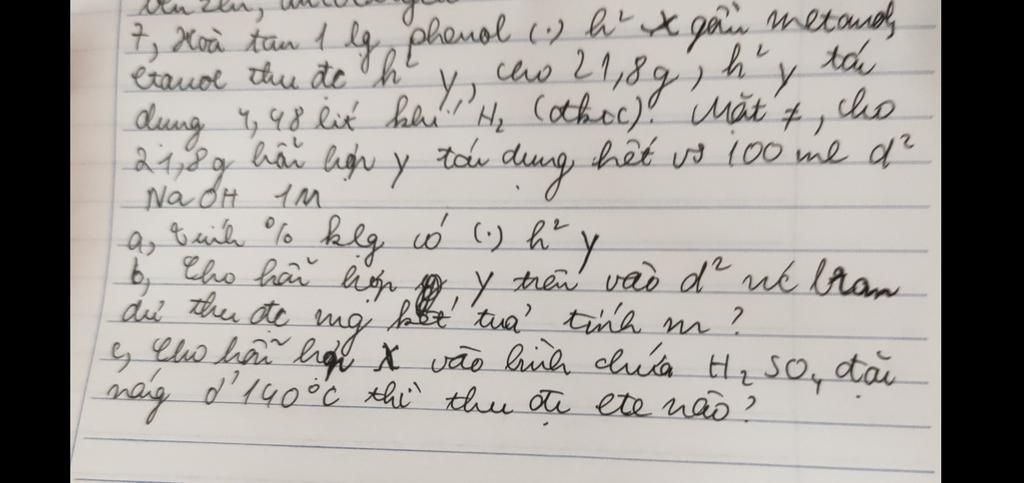 7, Hoà tan 1 lg phenol (.) h² X gồm metanol,
etanol thu đc h² y, cho 21,8g, h² y tác
dụng 4,48 lít khí H₂ (đktc). Mặt ≠, cho
21,8g hỗn hợp y tác dụng hết vs 100 ml d²
NaOH 1M
a, tính % klg có (.) h² y
b, Cho hỗn hợp y trên vào d² nc brom
dư thu đc mg kết tuả tính m?
c, Cho hỗn hợp X vào bình chứa H₂SO₄ đặc
nóng ở 140°C thì thu đc ete nào?